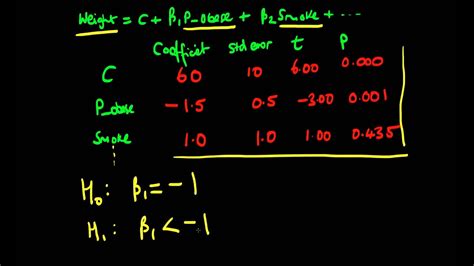 Weight = C + β₁P_obese + β₂Smoke + ...
Coefficient std error t P
C 60 10 6.00 0.000
P_obese -1.5 0.5 -3.00 0.001
Smoke 1.0 1.0 1.00 0.435
H₀: β₁ = -1
H₁: β₁ < -1